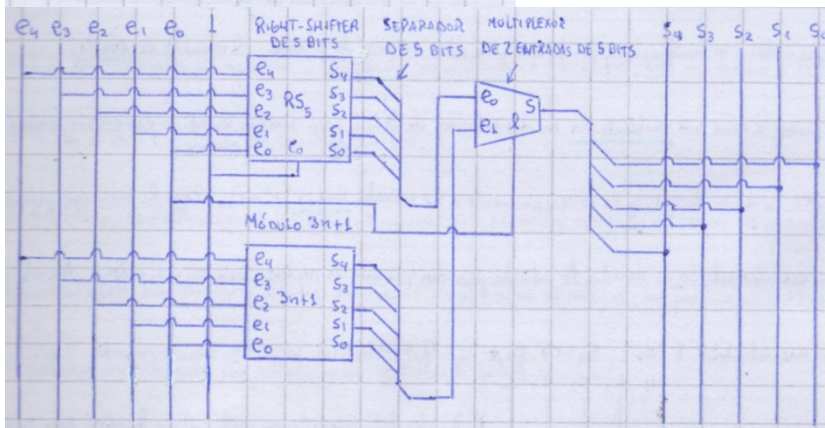 e4 e3 e2 e1 e0 1
RIGHT-SHIFTER DE 5 BITS
SEPARADOR DE 5 BITS
MULTIPLEXOR DE 2 ENTRADAS DE 5 BITS
S4 S3 S2 S1 S0
e4 S4
e3 S3
RS5
e2 S2
e1 S1
e0 e0 S0
e0 S
e1 l
MÓDULO 3n+1
e4 S4
e3 S3
e2 3n+1 S2
e1 S1
e0 S0